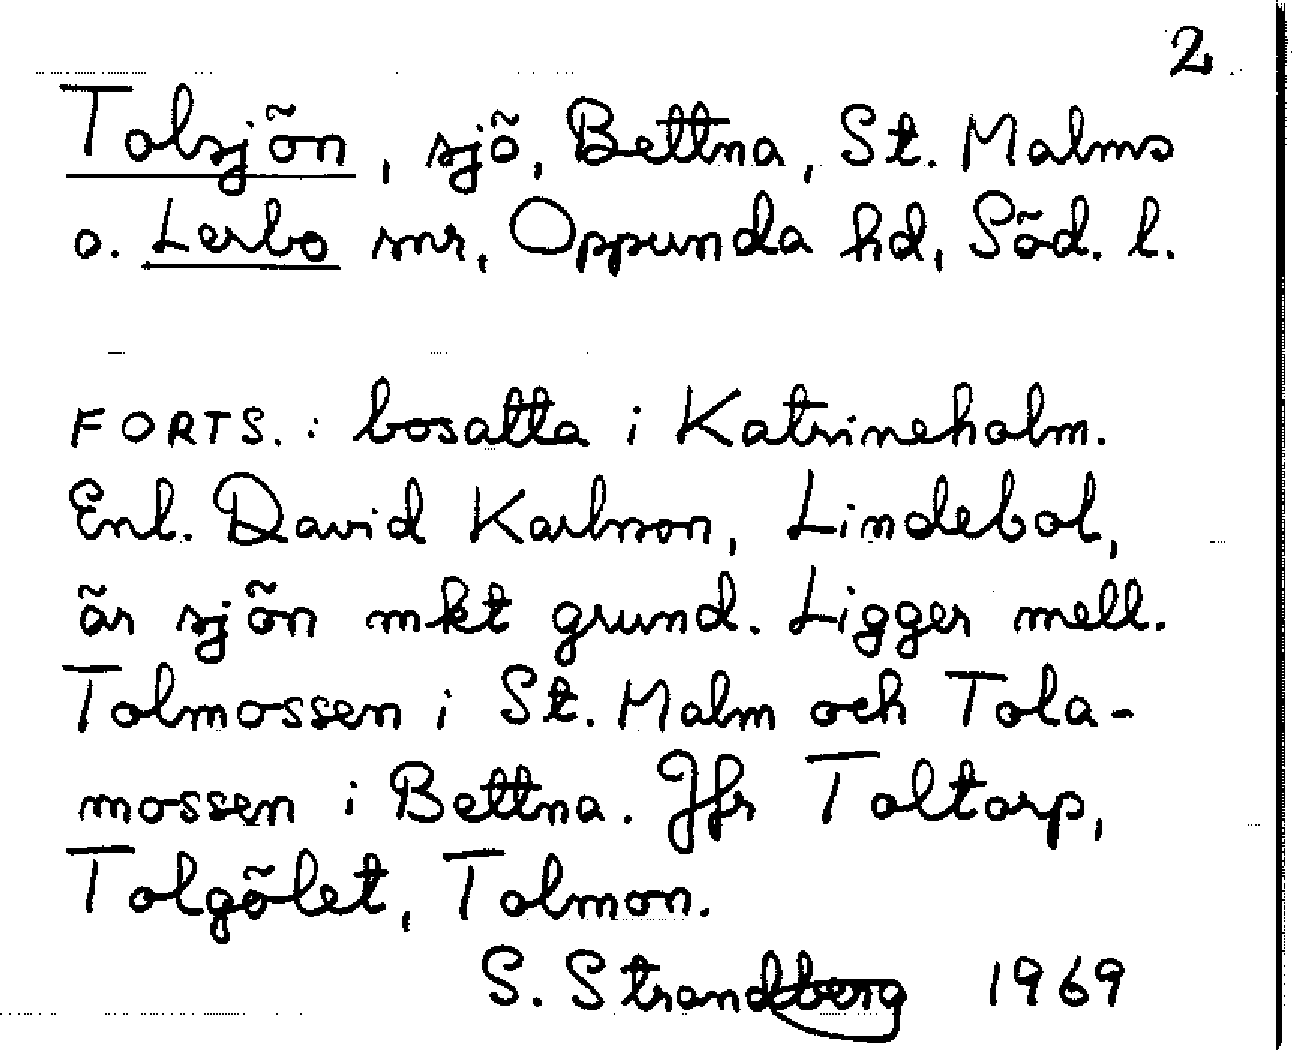 2
Tolsjön, sjö, Bettna, St. Malms
o. Lerbo snr, Oppunda hd, Söd. l.
FORTS. : bosatta i Katrineholm.
Enl. David Karlsson, Lindebol,
är sjön mkt grund. Ligger mell.
Tolmossen i St. Malm och Tola-
mossen i Bettna. Jfr Toltorp,
Tolgölet, Tolmon.
S. Strandberg 1969